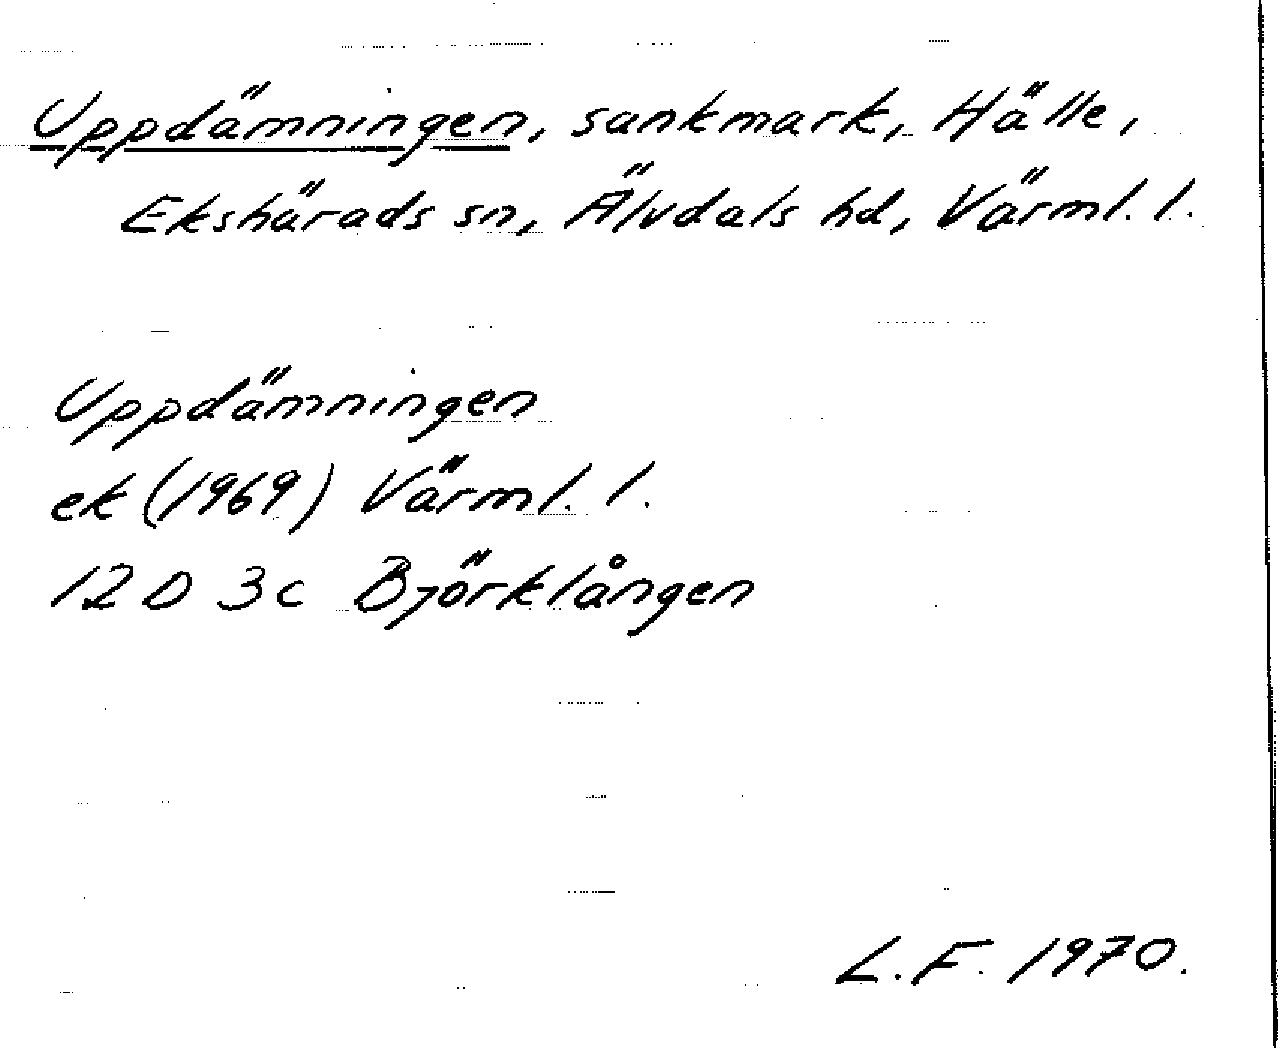 Uppdämningen, sankmark, Hälle,
Ekshärads sn, Älvdals hd, Värml. l.
Uppdämningen
ek (1969) Värml. l.
12 D 3c Björklången
L. F. 1970.